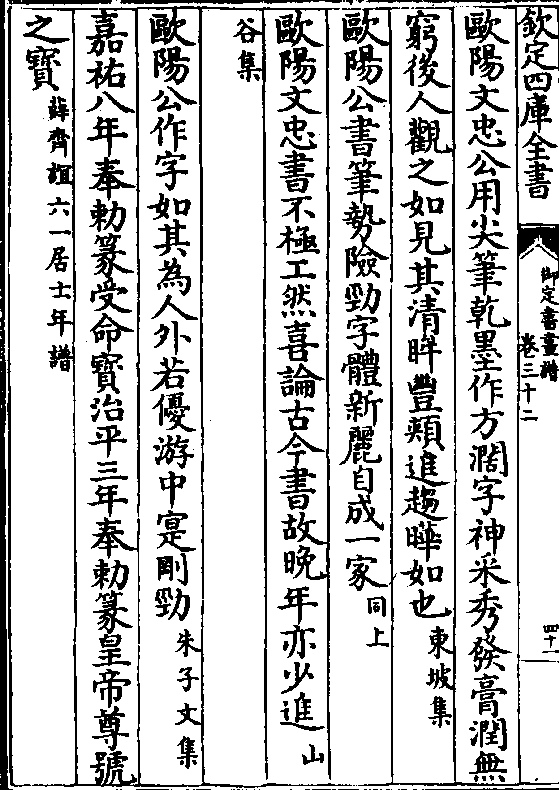 欽定四庫全書
御定書畫譜
卷三十二
四十一
歐陽文忠公用尖筆乾墨作方濶字神采秀發膏潤無
窮後人觀之如見其清眸豐頰進趨曄如也東坡集
歐陽公書筆勢險勁字體新麗自成一家同上
歐陽文忠書不極工然喜論古今書故晚年亦少進山
谷集
歐陽公作字如其為人外若優游中寔剛勁朱子文集
嘉祐八年奉勅篆受命寶治平三年奉勅篆皇帝尊號
之寳薛齊誼六一居士年譜